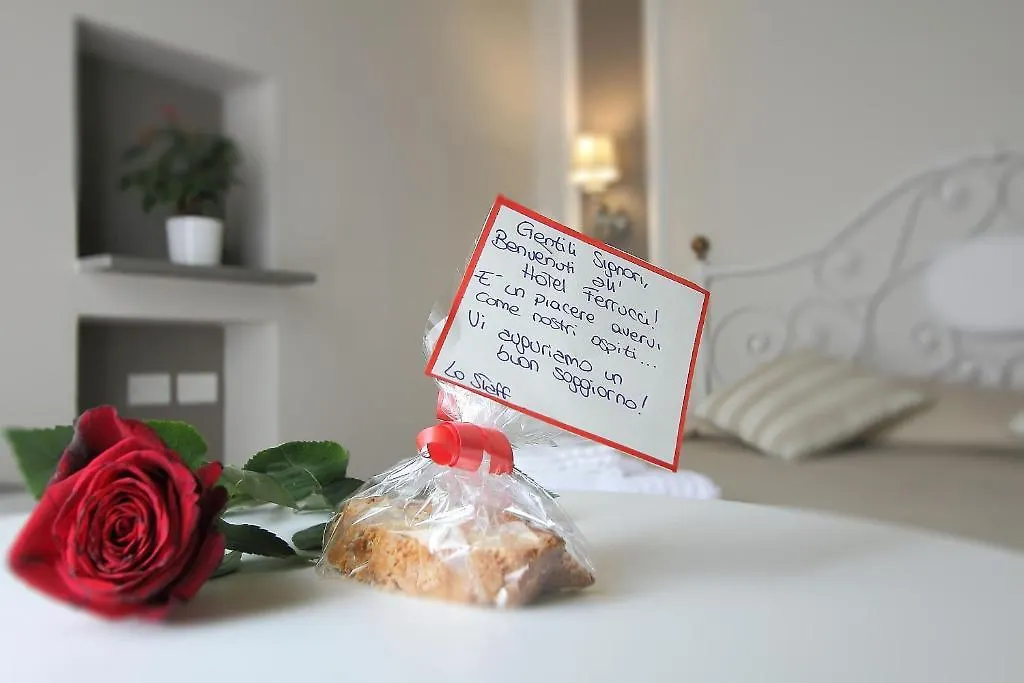 Gentili Signori,
Benvenuti all'
Hotel Ferrucci!
E' un piacere avervi
come nostri ospiti...
Vi auguriamo un
buon soggiorno!
Lo Staff